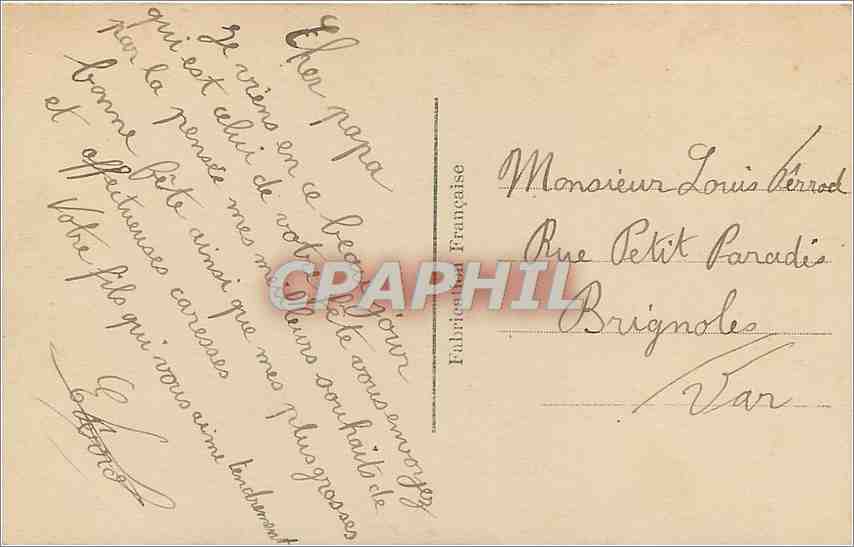 Cher papa
Je viens en ce beau jour
qui est celui de votre fête vous envoyez
par la pensée mes meilleurs souhaits de
bonne fête ainsi que mes plus grosses
et affectueuses caresses
Votre fils qui vous aime tendrement
E
Fabrication Française
Monsieur Louis Pérrod
Rue Petit Paradis
Brignoles
Var
CPAPHIL